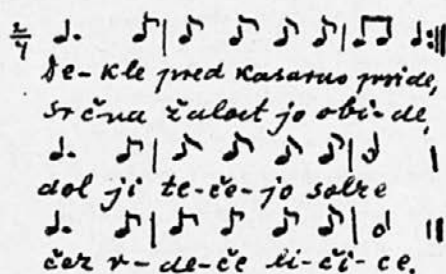 2/4
De-kle pred kasarno pride,
srčna žalost jo obi-de,
dol ji te-če-jo solze
čez r-de-če li-či-ce.